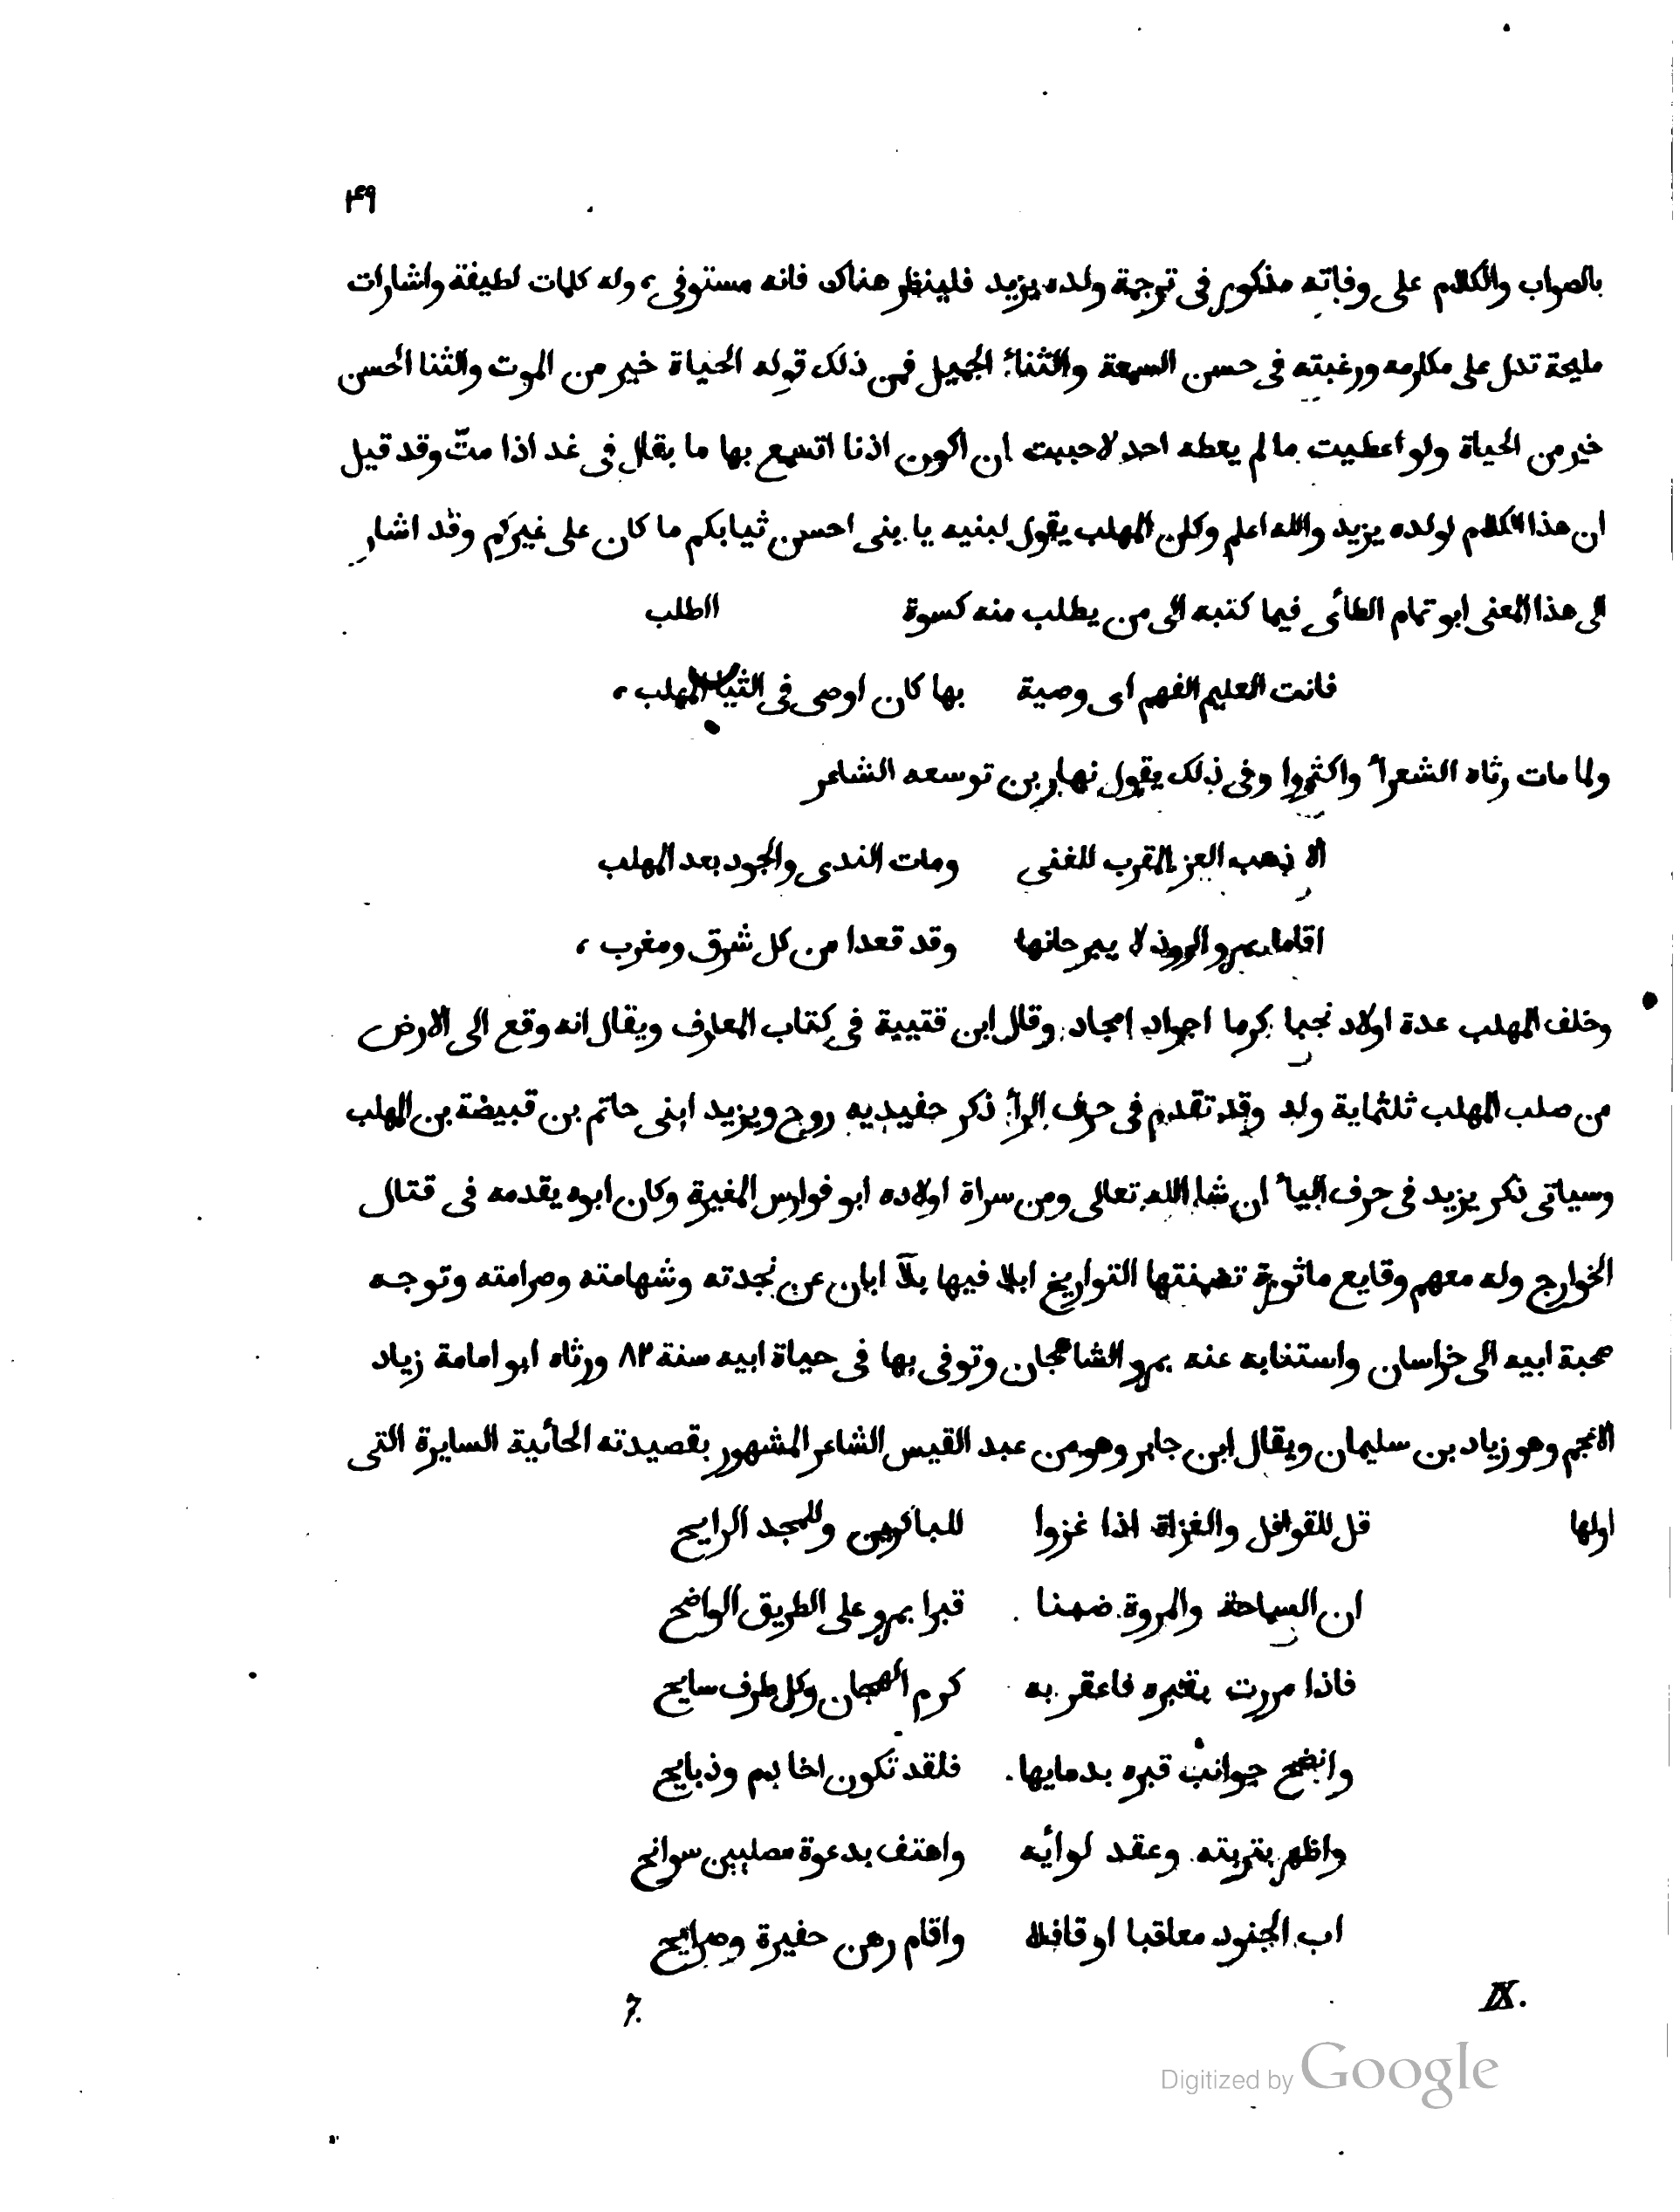 ٤٩
بالصواب والكلام على وفاته مذكور فى ترجمة ولده يزيد فلينظر هناك فانه مستوفى، وله كلمات لطيفة واشارات
مليحة تدل على مكارمه ورغبته فى حسن السمعة والثنا الجميل فمن ذلك قوله الحياة خير من الموت والثنا الحسن
خير من الحياة ولو اعطيت ما لم يعطه احد لاحببت ان اكون اذنا اتسمع بها ما يقال فى غد اذا متّ وقد قيل
ان هذا الكلام لولده يزيد والله اعلم وكان المهلب يقول لبنيه يا بنى احسن ثيابكم ما كان على غيركم وقد اشار
الى هذا المعنى ابو تمام الطائى فيما كتبه الى من يطلب منه كسوة االطلب
فانت العليم الفهم اى وصية بها كان اوصى فى الثياب المهلب،
ولما مات رثاه الشعرأ واكثروا وفى ذلك يقول نهار بن توسعه الشاعر
الا ذهب العز المقرب للغنى ومات الندى والجود بعد المهلب
اقاما بمرو الروذ لا يبرحانها وقد قعدا من كل شرق ومغرب،
وخلف المهلب عدة اولاد نجبا كرما اجواد امجاد وقال ابن قتيبة فى كتاب المعارف ويقال انه وقع الى الارض
من صلب المهلب ثلثماية ولد وقد تقدم فى حرف الرأ ذكر حفيديه روح ويزيد ابنى حاتم بن قبيضة بن المهلب
وسياتى ذكر يزيد فى حرف اليأ ان شا الله تعالى ومن سراة اولاده ابو فوارس المغيرة وكان ابوه يقدمه فى قتال
الخوارج وله معهم وقايع ماثورة تضمنتها التواريخ ابلا فيها بلآ ابان عن نجدته وشهامته وصرامته وتوجه
صحبة ابيه الى خراسان واستنابه عنه بمرو الشاهجان وتوفى بها فى حياة ابيه سنة ٨٢ ورثاه ابو امامة زياد
الاعجم وهو زياد بن سليمان ويقال ابن جابر وهو من عبد القيس الشاعر المشهور بقصيدته الحائية السايرة التى
اولها قل للقوافل والغزاة اذا غزوا للباكرين وللمجد الرايح
ان السماحة والمروة ضمنا قبرا بمرو على الطريق الواضح
فاذا مررت بقبره فاعقر به كرم الهجان وكل طرف سابح
وانضح جوانب قبره بدمايها فلقد تكون اخا بم وذبايح
واظهر بتربته وعقد لوائه واهتف بدعوة مصلبين سوانح
اب الجنود معاقبا او قافلا واقام رهن حفيرة وضرايح
7. IX.
Digitized by Google